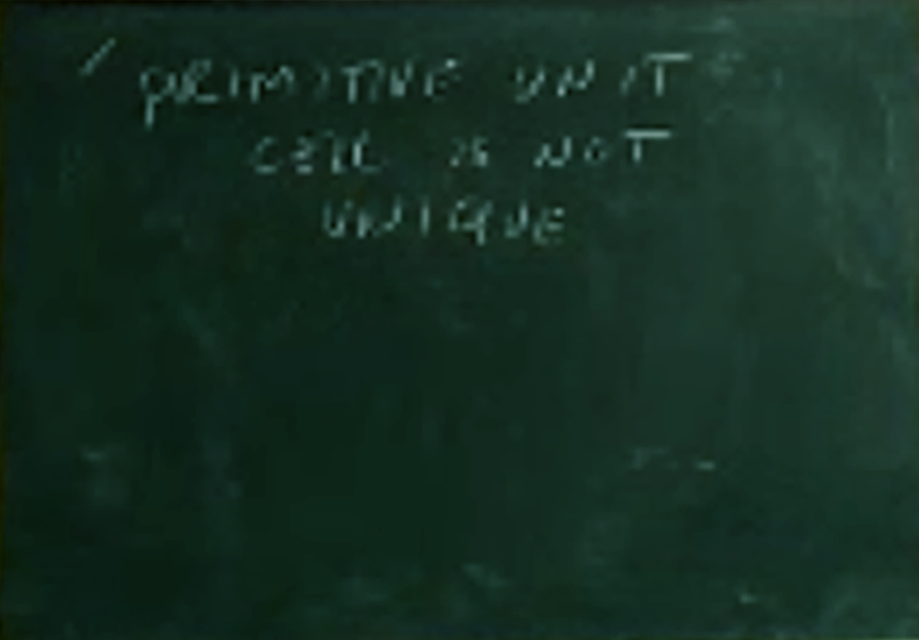 PRIMITIVE UNIT
CELL IS NOT
UNIQUE